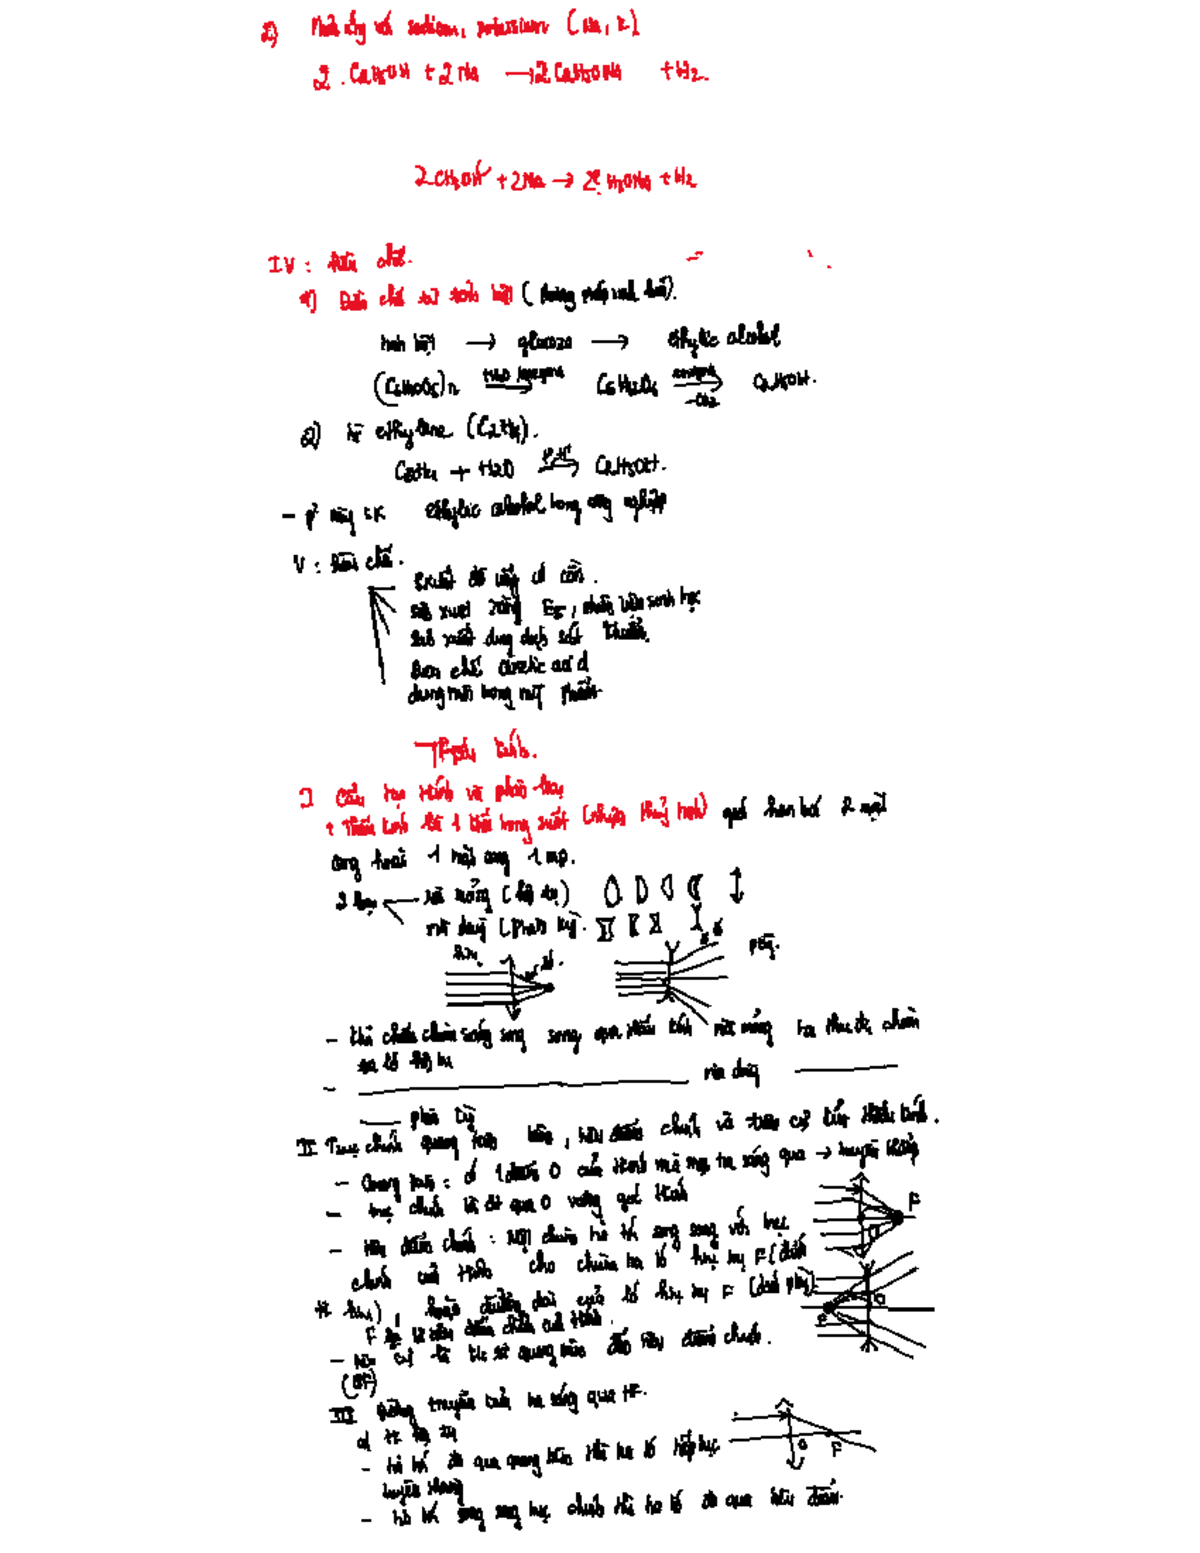 2) Phản ứng với sodium, potassium (Na, K)
2. C2H5OH + 2Na → 2 C2H5ONa + H2.
2CH3OH + 2Na → 2CH3ONa + H2
IV: Điều chế.
1) Điều chế từ tinh bột (phương pháp sinh hoá).
tinh bột → glucozo → ethylic alcohol
(C6H10O5)n → C6H12O6 → -CO2 C2H5OH.
2) từ ethylene (C2H4).
C2H4 + H2O → C2H5OH.
- pứ này đk ethylic alcohol trong công nghiệp
V: Điều chế.
Sản xuất đồ uống có cồn.
Sản xuất xăng E5, nhiên liệu sinh học
Sản xuất dung dịch sát khuẩn.
Điều chế acetic acid
dung môi trong mỹ phẩm.
Thấu kính.
I Cấu tạo kính và phân loại
: Thấu kính là 1 khối trong suốt (nhựa, thuỷ tinh) giới hạn bởi 2 mặt
cong hoặc 1 mặt cong 1 mp.
2 loại rìa mỏng (hội tụ)
rìa dày (phân kỳ).
- Khi chiếu chùm sáng song song qua thấu kính rìa mỏng ta thu đc chùm
tia ló hội tụ
- rìa dày
phân kỳ
II Trục chính quang tâm, tiêu điểm chính và tiêu cự của thấu kính.
- Quang tâm: là 1 điểm O của thấu kính mà mọi tia sáng qua → truyền thẳng
- trục chính là đt qua O vuông góc kính
- tiêu điểm chính: Một chùm tia tới song song với trục
chính của kính cho chùm tia ló hội tụ F (đối
tk hội tụ), hoặc đường kéo dài của tia ló hội tụ F (đối phân kỳ).
F gọi là tiêu điểm chính của kính.
- tiêu cự là k/c từ quang tâm đến tiêu điểm chính.
(OF)
III Đường truyền của tia sáng qua TK.
a) TK hội tụ
- tia tới đi qua quang tâm thì tia ló tiếp tục
truyền thẳng
- tia tới song song trục chính thì tia ló đi qua tiêu điểm.
F
O
F
O
O
F